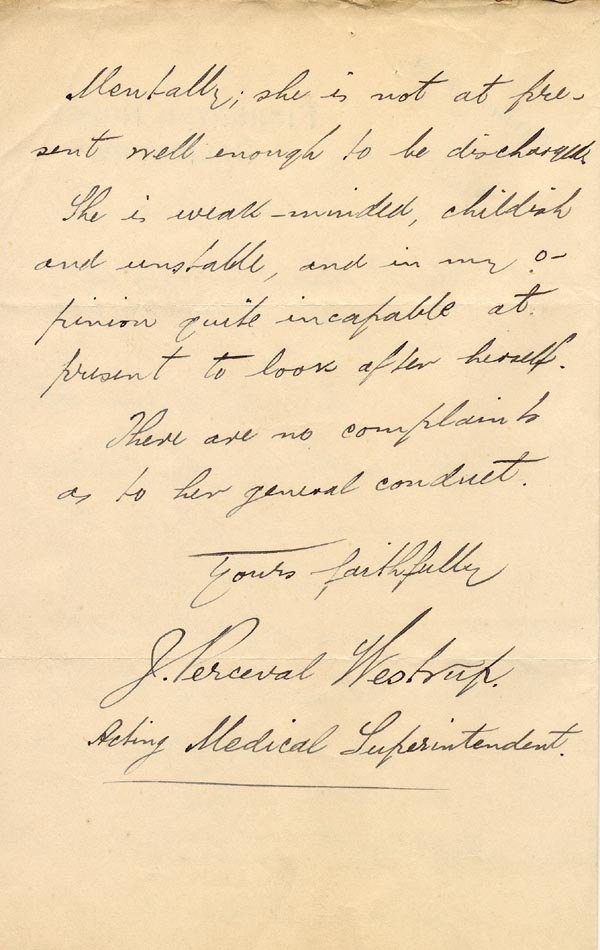 Mentally; she is not at pre-
sent well enough to be discharged.
She is weak-minded, childish
and unstable, and in my o-
pinion quite incapable at
present to look after herself.
There are no complaints
as to her general conduct.
Yours faithfully
J. Perceval Westrup.
Acting Medical Superintendent.